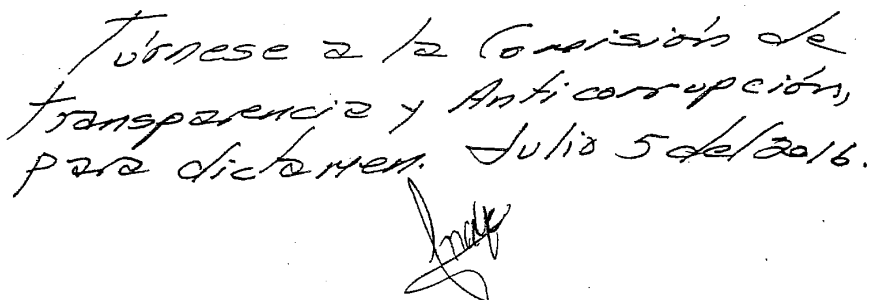 Túrnese a la Comisión de
Transparencia y Anticorrupción,
para dictamen. Julio 5 del 2016.